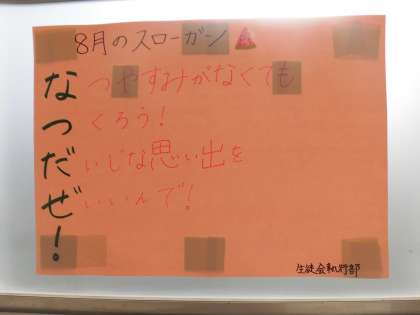 8月のスローガン
なつやすみがなくても
つくろう!
だいじな思い出を
ぜいいんで!
!
生徒会執行部